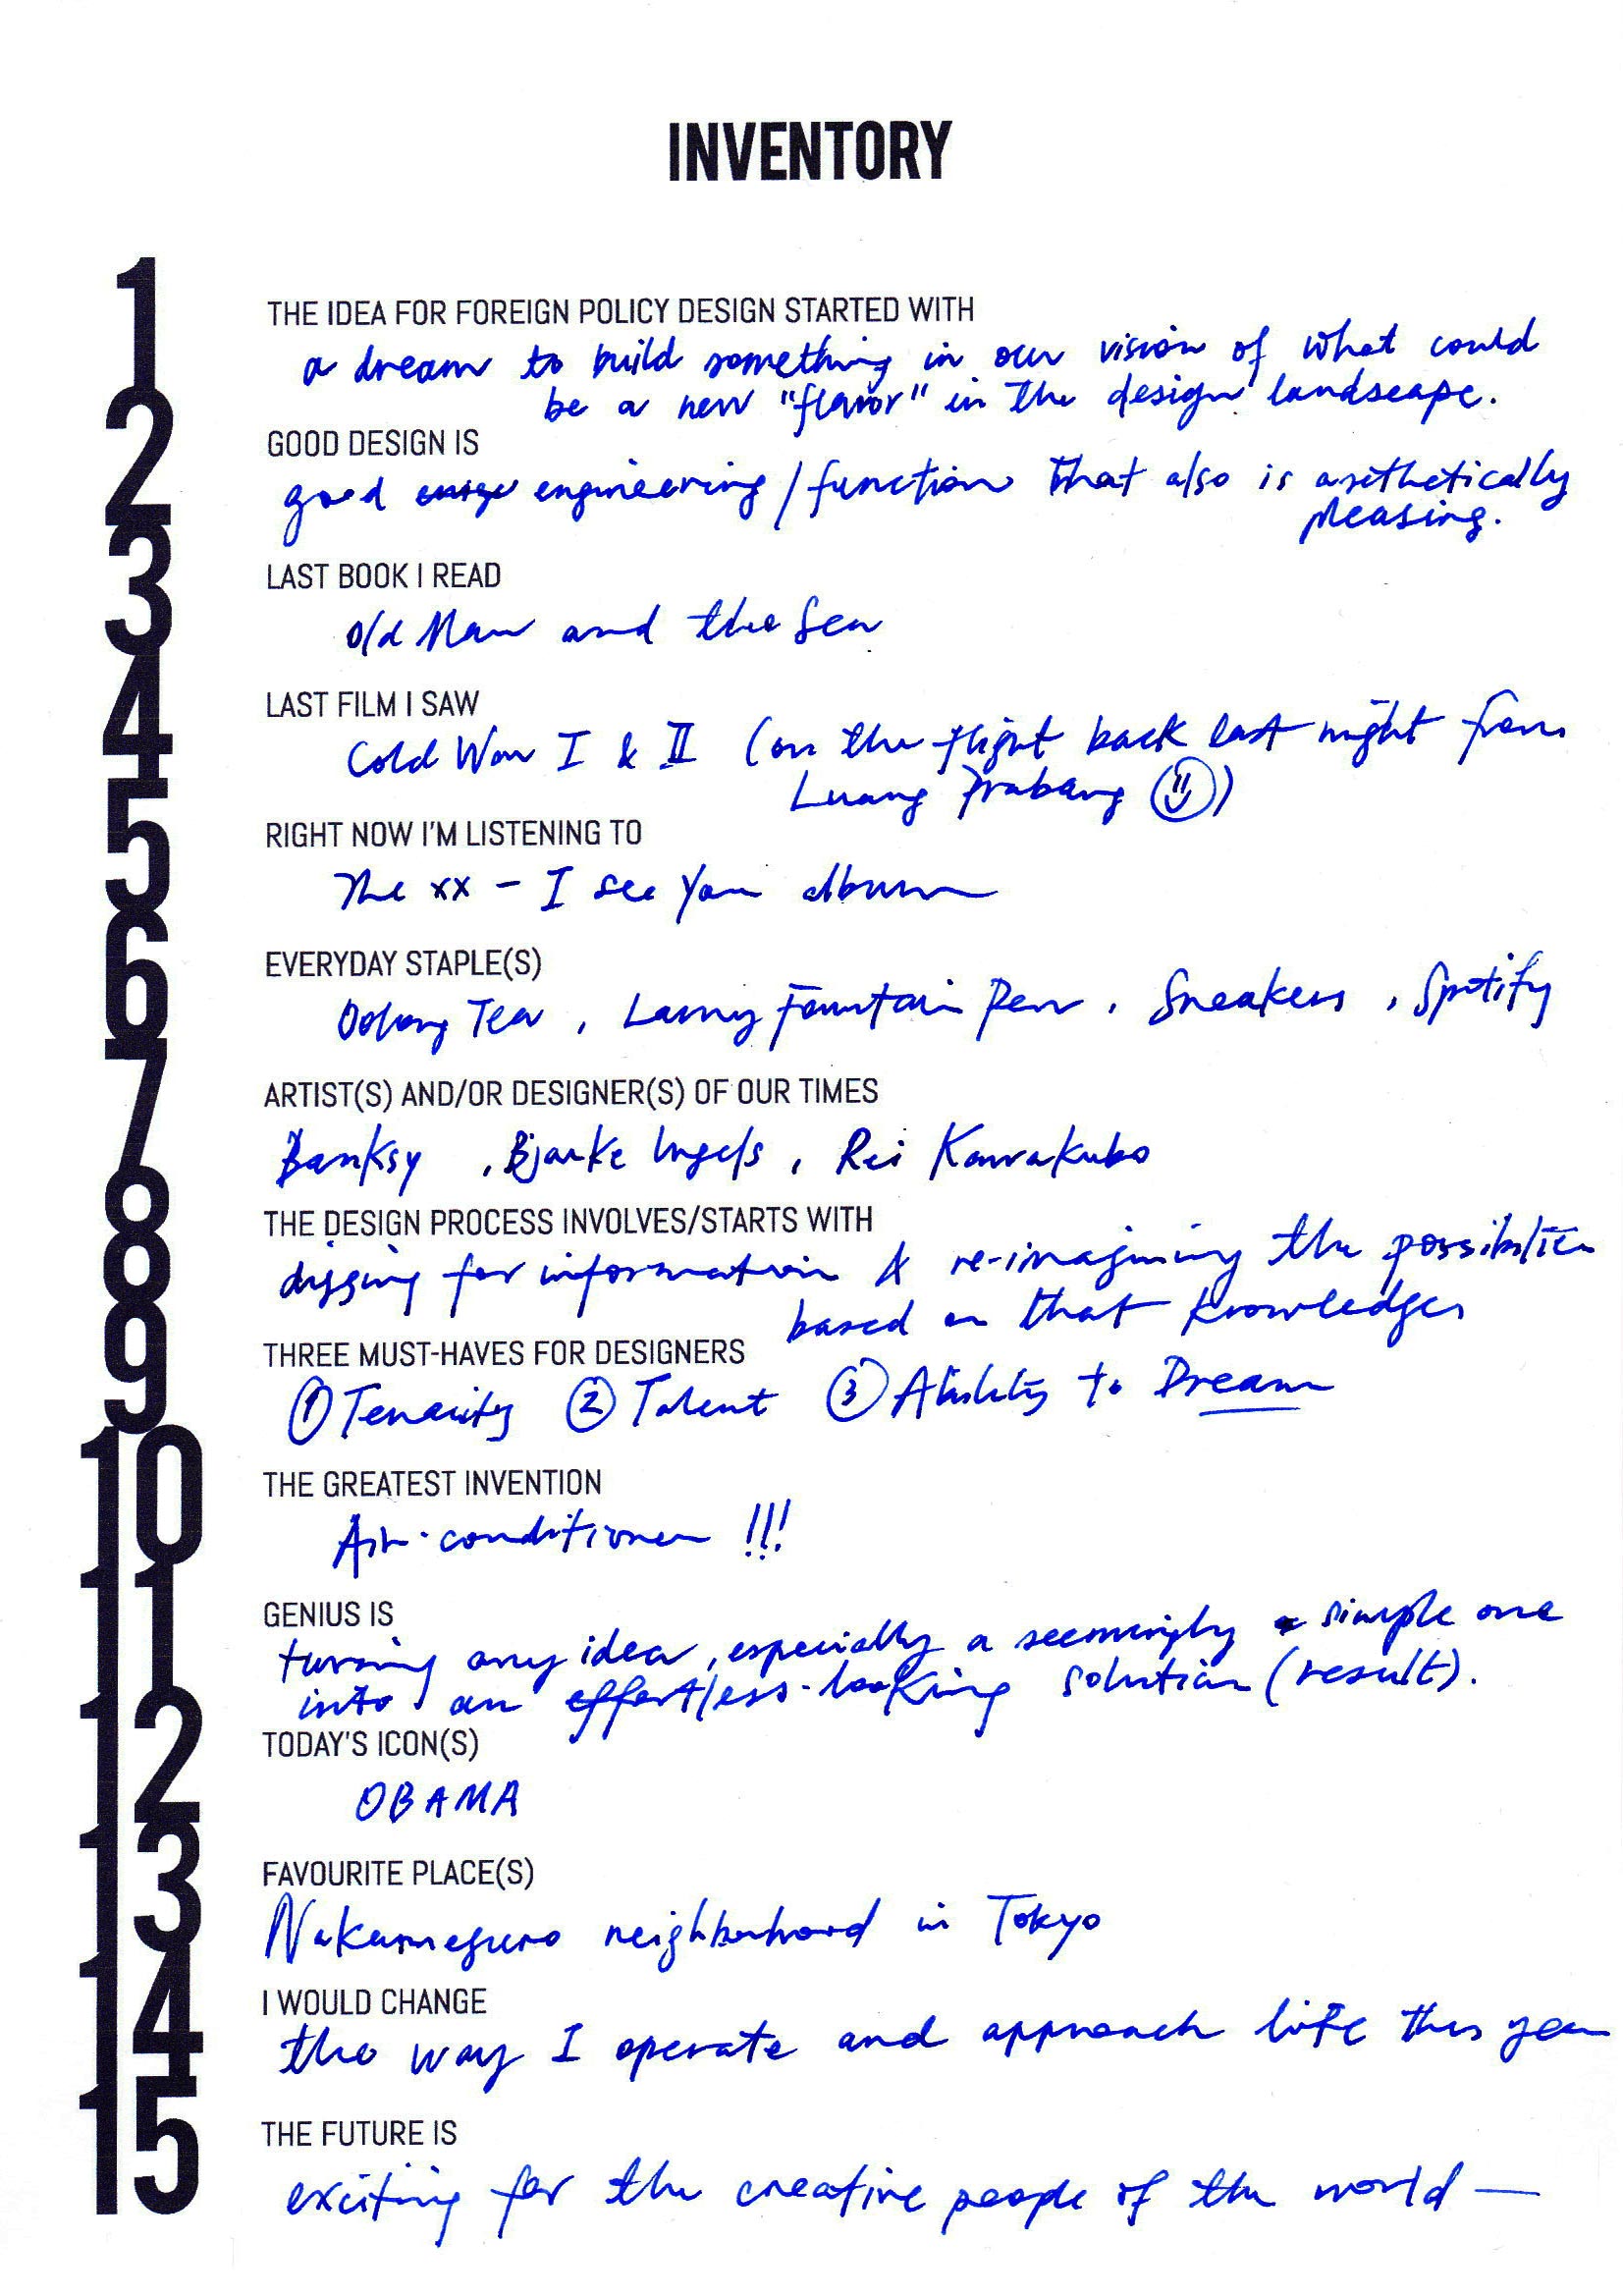 INVENTORY
1
THE IDEA FOR FOREIGN POLICY DESIGN STARTED WITH
a dream to build something in our vision of what could
be a new "flavor" in the design landscape.
2
GOOD DESIGN IS
good engineering / function that also is aesthetically
pleasing.
3
LAST BOOK I READ
Old Man and the Sea
4
LAST FILM I SAW
Cold War I & II (on the flight back last night from
Luang Prabang )
5
RIGHT NOW I'M LISTENING TO
The xx - I see You album
6
EVERYDAY STAPLE(S)
Oolong Tea, Lamy Fountain Pen, Sneakers, Spotify
7
ARTIST(S) AND/OR DESIGNER(S) OF OUR TIMES
Banksy, Bjarke Ingels, Rei Kawakubo
8
THE DESIGN PROCESS INVOLVES/STARTS WITH
digging for information & re-imagining the possibilities
based on that knowledge
9
THREE MUST-HAVES FOR DESIGNERS
① Tenacity ② Talent ③ Ability to Dream
10
THE GREATEST INVENTION
Air-conditioner !!!
11
GENIUS IS
turning any idea, especially a seemingly simple one
into an effortless-looking solution (result).
12
TODAY'S ICON(S)
OBAMA
13
FAVOURITE PLACE(S)
Nakameguro neighborhood in Tokyo
14
I WOULD CHANGE
the way I operate and approach life this year
15
THE FUTURE IS
exciting for the creative people of the world —